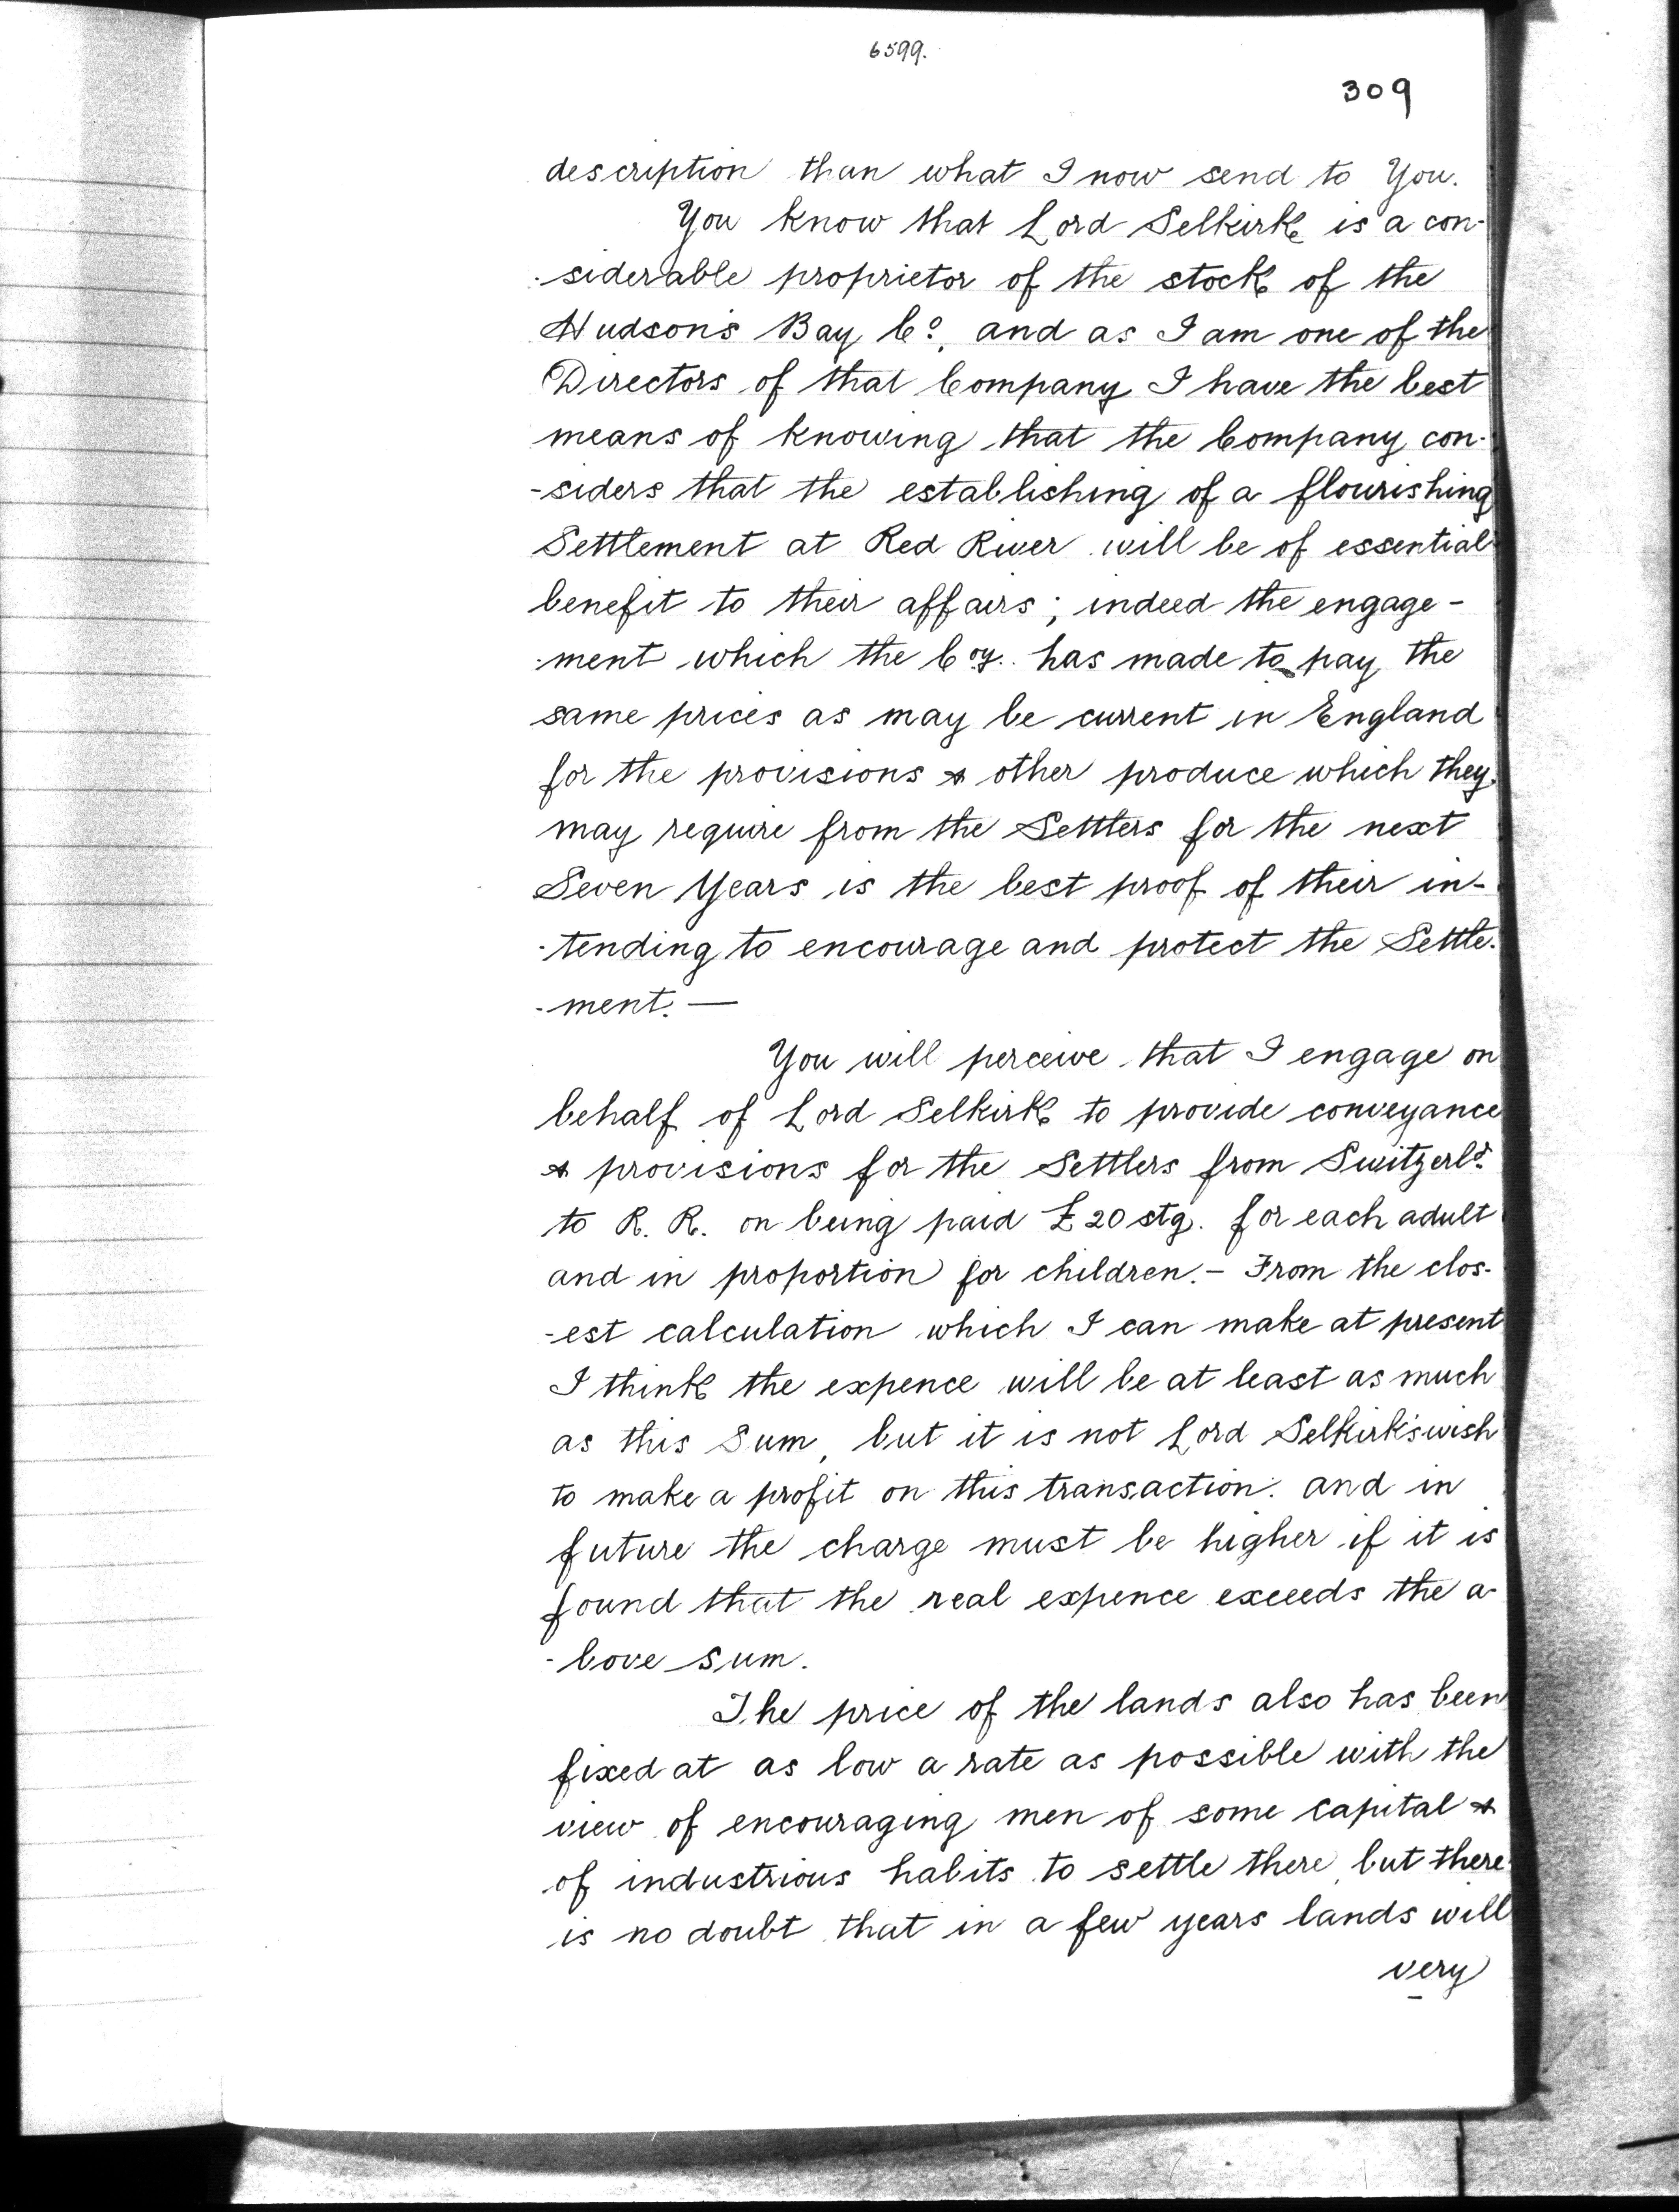 6599.
309
description than what I now send to You.
You know that Lord Selkirk is a con-
-siderable proprietor of the stock of the
Hudson's Bay Co., and as I am one of the
Directors of that Company I have the best
means of knowing that the Company con-
-siders that the establishing of a flourishing
Settlement at Red River will be of essential
benefit to their affairs; indeed the engage-
-ment which the Coy. has made to pay the
same prices as may be current in England
for the provisions & other produce which they
may require from the Settlers for the next
Seven Years is the best proof of their in-
-tending to encourage and protect the Settle-
-ment. —
You will perceive that I engage on
behalf of Lord Selkirk to provide conveyance
& provisions for the Settlers from Switzerld.
to R. R. on being paid £20 stg. for each adult
and in proportion for children. - From the clos-
-est calculation which I can make at present
I think the expence will be at least as much
as this Sum, but it is not Lord Selkirk's wish
to make a profit on this transaction. and in
future the charge must be higher if it is
found that the real expence exceeds the a-
-bove sum.
The price of the lands also has been
fixed at as low a rate as possible with the
view of encouraging men of some capital &
of industrious habits to settle there, but there
is no doubt that in a few years lands will
very